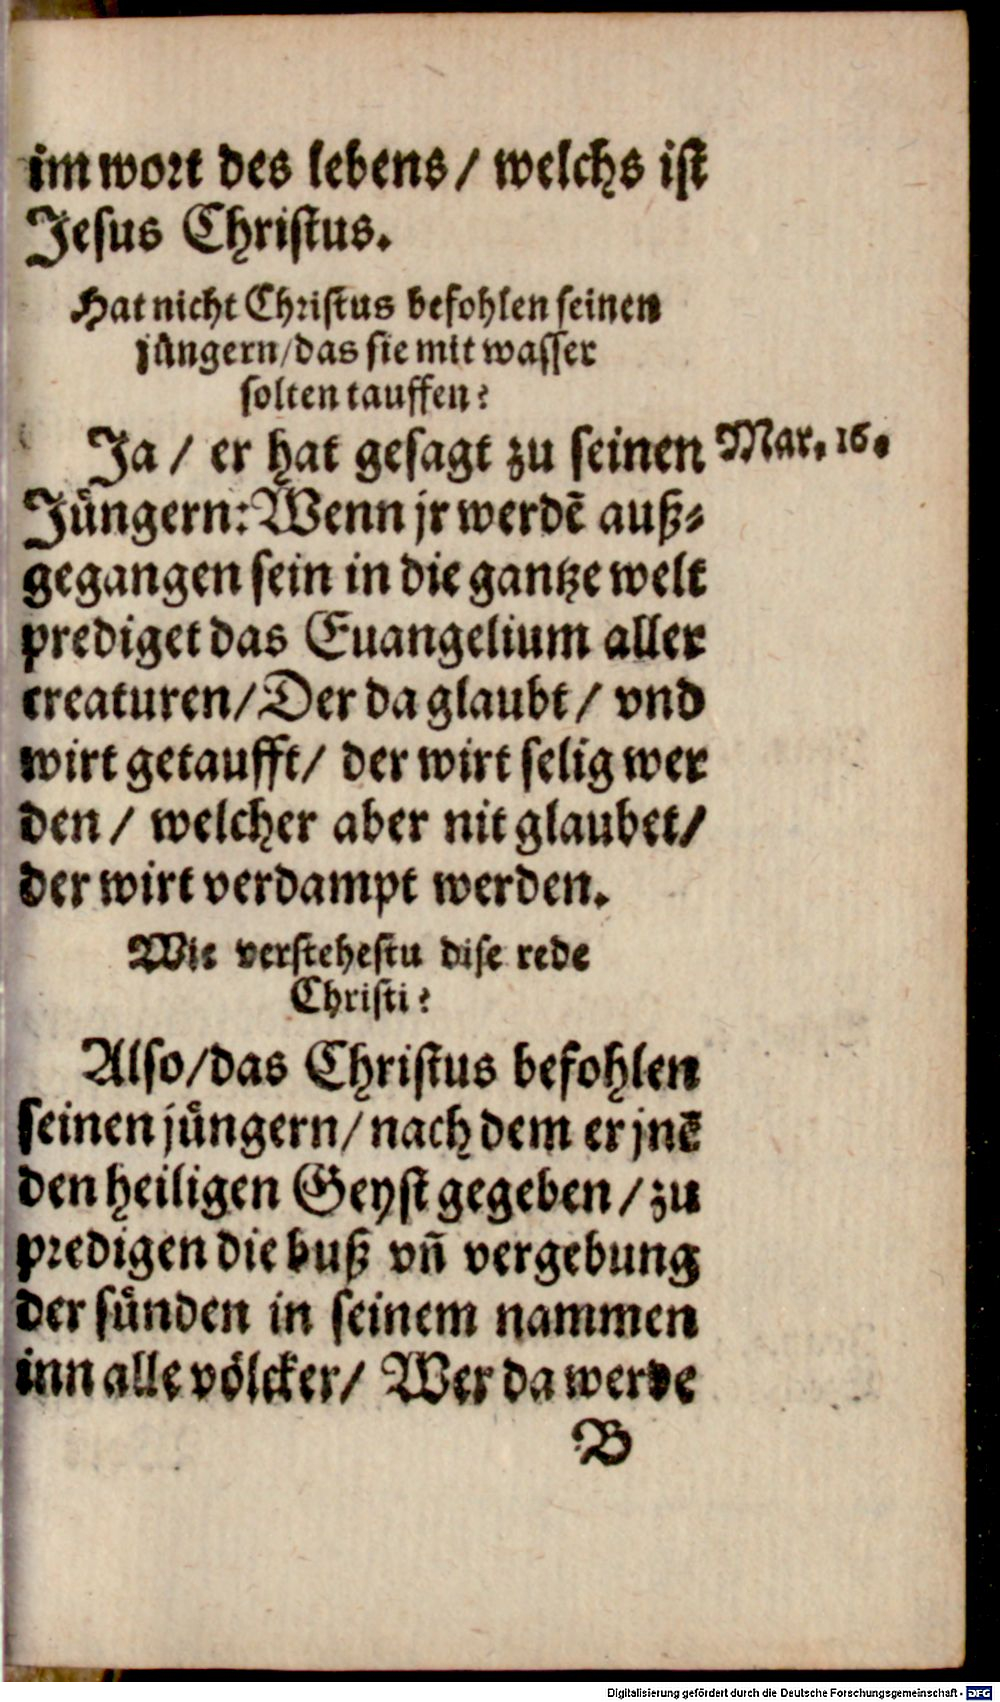 im wort des lebens / welchs ist
Jesus Christus.
Hat nicht Christus befohlen seinen
jüngern / das sie mit wasser
solten tauffen?
Ja / er hat gesagt zu seinen Mar. 16.
Jüngern: Wenn jr werdē auß⸗
gegangen sein in die gantze welt
prediget das Euangelium aller
creaturen / Der da glaubt / vnd
wirt getaufft / der wirt selig wer
den / welcher aber nit glaubet /
der wirt verdampt werden.
Wie verstehestu dise rede
Christi?
Also / das Christus befohlen
seinen jüngern / nach dem er jnē
den heiligen Geyst gegeben / zu
predigen die buß vñ vergebung
der sünden in seinem nammen
inn alle völcker / Wer da werde
B
Digitalisierung gefördert durch die Deutsche Forschungsgemeinschaft - DFG